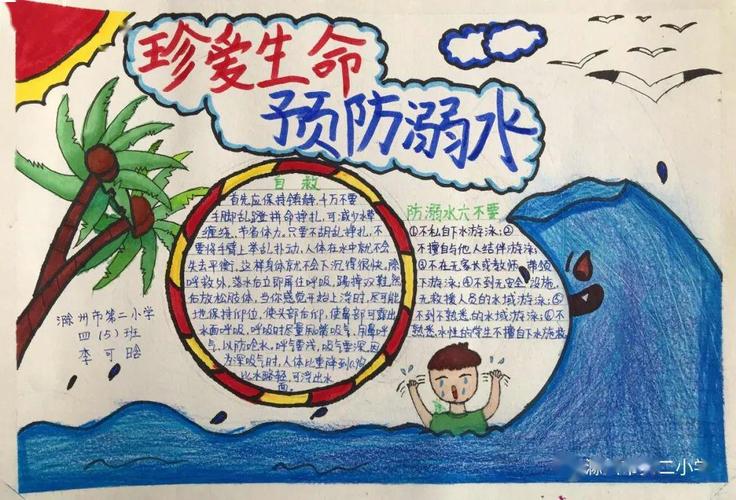 珍爱生命
预防溺水
自救
首先应保持镇静,千万不要
手脚乱蹬拼命挣扎,可减少水草
缠绕,节省体力。只要不胡乱挣扎,不
要将手臂上举乱扑动,人体在水中就不会
失去平衡,这样身体就不会下沉得很快。除
呼救外,落水后立即屏住呼吸,踢掉双鞋,然
后放松肢体,当你感觉开始上浮时,尽可能
地保持仰位,使头部后仰,使鼻部可露出
水面呼吸,呼吸时尽量用嘴吸气,用鼻呼
气,以防呛水。呼气要浅,吸气要深。因
为深吸气时,人体比重降到
比水略轻,可浮出水
面。
防溺水六不要
①不私自下水游泳;②
不擅自与他人结伴游泳;
③不在无家长或教师 带领
下游泳;④不到无安全设施、
无救援人员的水域游泳;⑤
不到不熟悉的水域游泳;⑥不
熟悉水性的学生不擅自下水施救
滁州市第二小学
四(5)班
李可晗
二小学